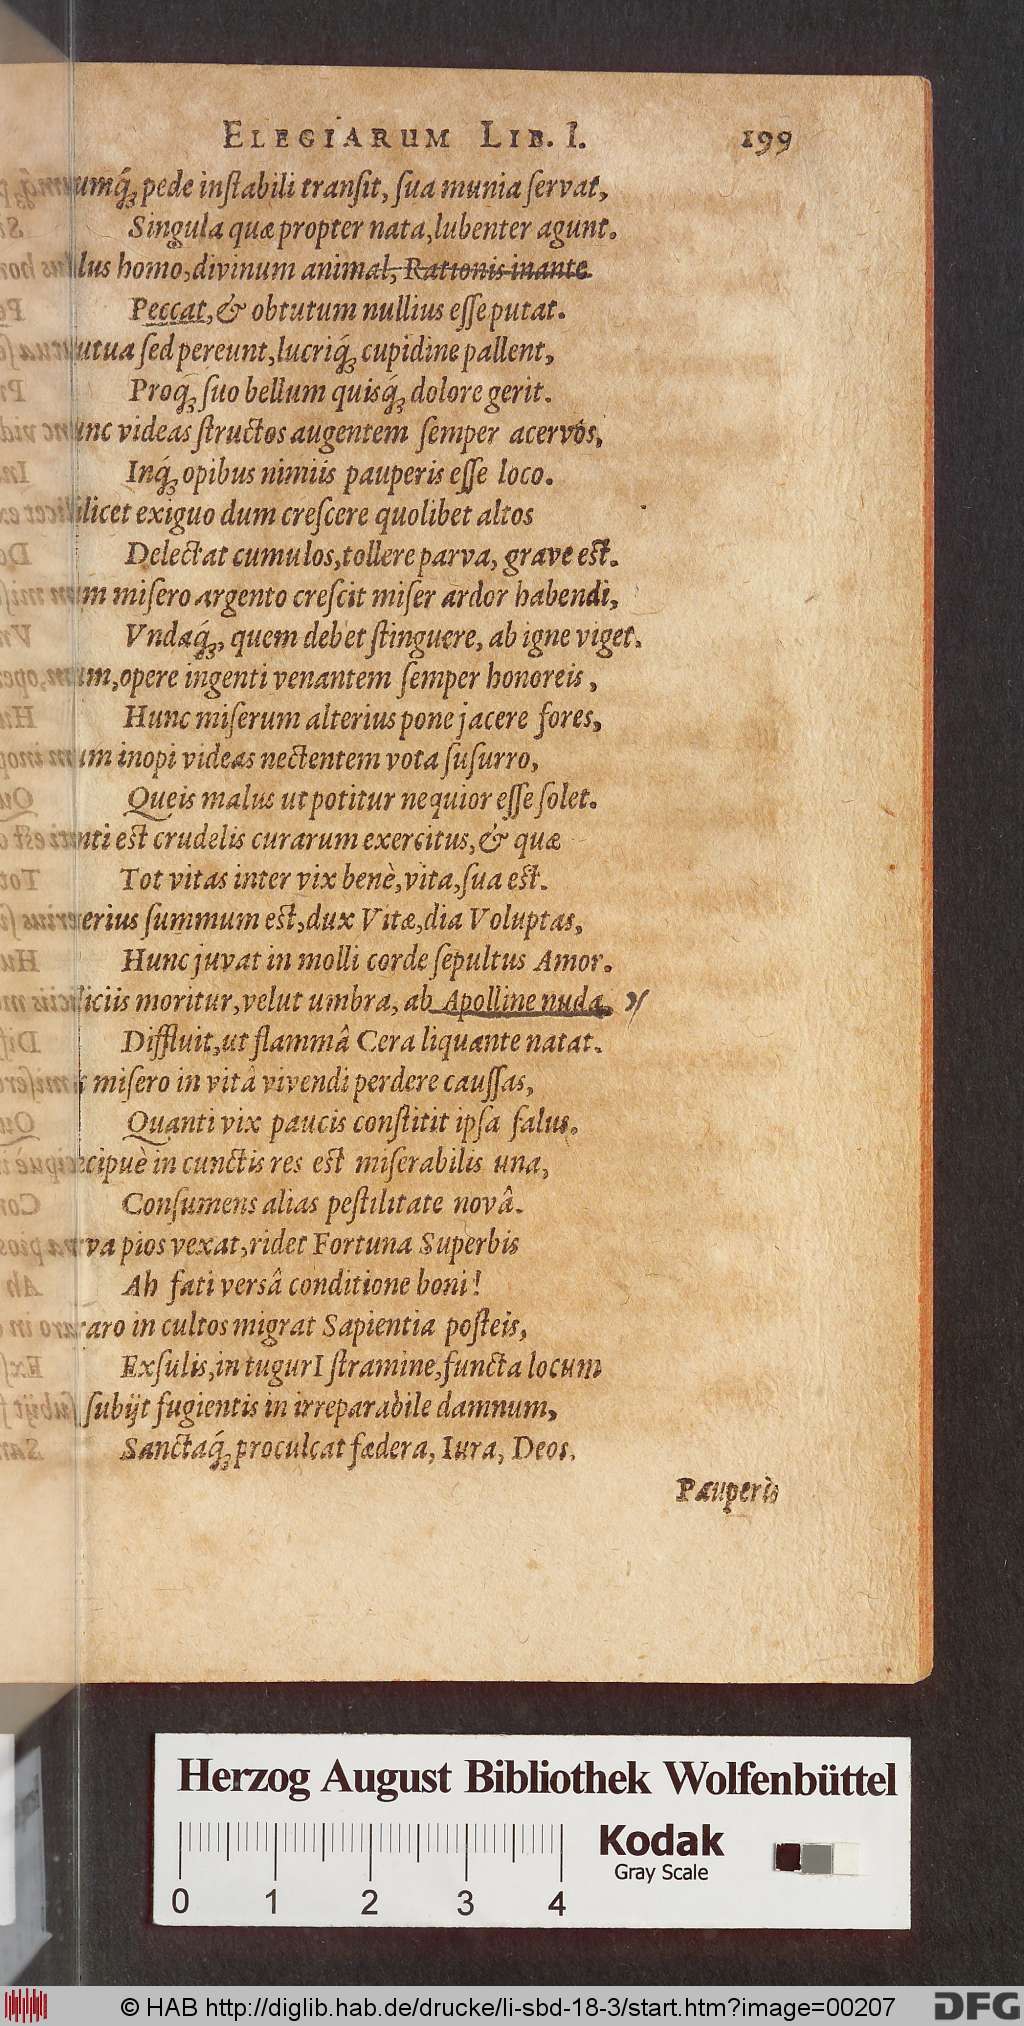 ELEGIARUM LIB. I. 199
umq́; pede instabili transit, sua munia servat,
Singula quæ propter nata, lubenter agunt.
lus homo, divinum animal, Rationis inante
Peccat, & obtutum nullius esse putat.
utua sed pereunt, lucriq́; cupidine pallent,
Proq́; suo bellum quisq́; dolore gerit.
unc videas structos augentem semper acervos,
Inq́; opibus nimiis pauperis esse loco.
ilicet exiguo dum crescere quolibet altos
Delectat cumulos, tollere parva, grave est.
um misero argento crescit miser ardor habendi,
Vndaq́;, quem debet stinguere, ab igne viget.
um, opere ingenti venantem semper honoreis,
Hunc miserum alterius pone jacere fores,
um inopi videas nectentem vota susurro,
Queis malus ut potitur nequior esse solet.
nti est crudelis curarum exercitus, & quæ
Tot vitas inter vix benè, vita, sua est.
erius summum est, dux Vitæ, dia Voluptas,
Hunc juvat in molli corde sepultus Amor.
liciis moritur, velut umbra, ab Apolline nuda,
Diffluit, ut flammâ Cera liquante natat.
misero in vitâ vivendi perdere caussas,
Quanti vix paucis constitit ipsa salus.
cipuè in cunctis res est miserabilis una,
Consumens alias pestilitate novâ.
va pios vexat, ridet Fortuna Superbis
Ah fati versâ conditione boni!
raro in cultos migrat Sapientia posteis,
Exsulis, in tugurI stramine, functa locum
subijt fugientis in irreparabile damnum,
Sanctaq́; proculcat fædera, Iura, Deos.
Pauperis
Herzog August Bibliothek Wolfenbüttel
Kodak
Gray Scale
0 1 2 3 4
© HAB http://diglib.hab.de/drucke/li-sbd-18-3/start.htm?image=00207 DFG